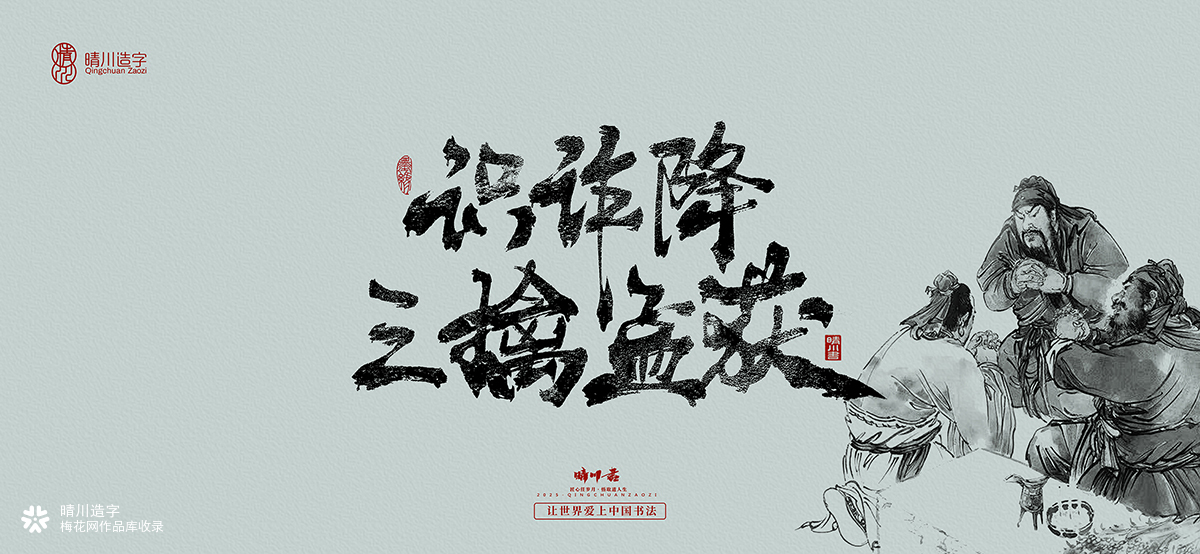 晴川造字
Qingchuan Zaozi
识诈降
三擒孟获
晴川書
2025·QINGCHUANZAOZI
让世界爱上中国书法
晴川造字
梅花网作品库收录